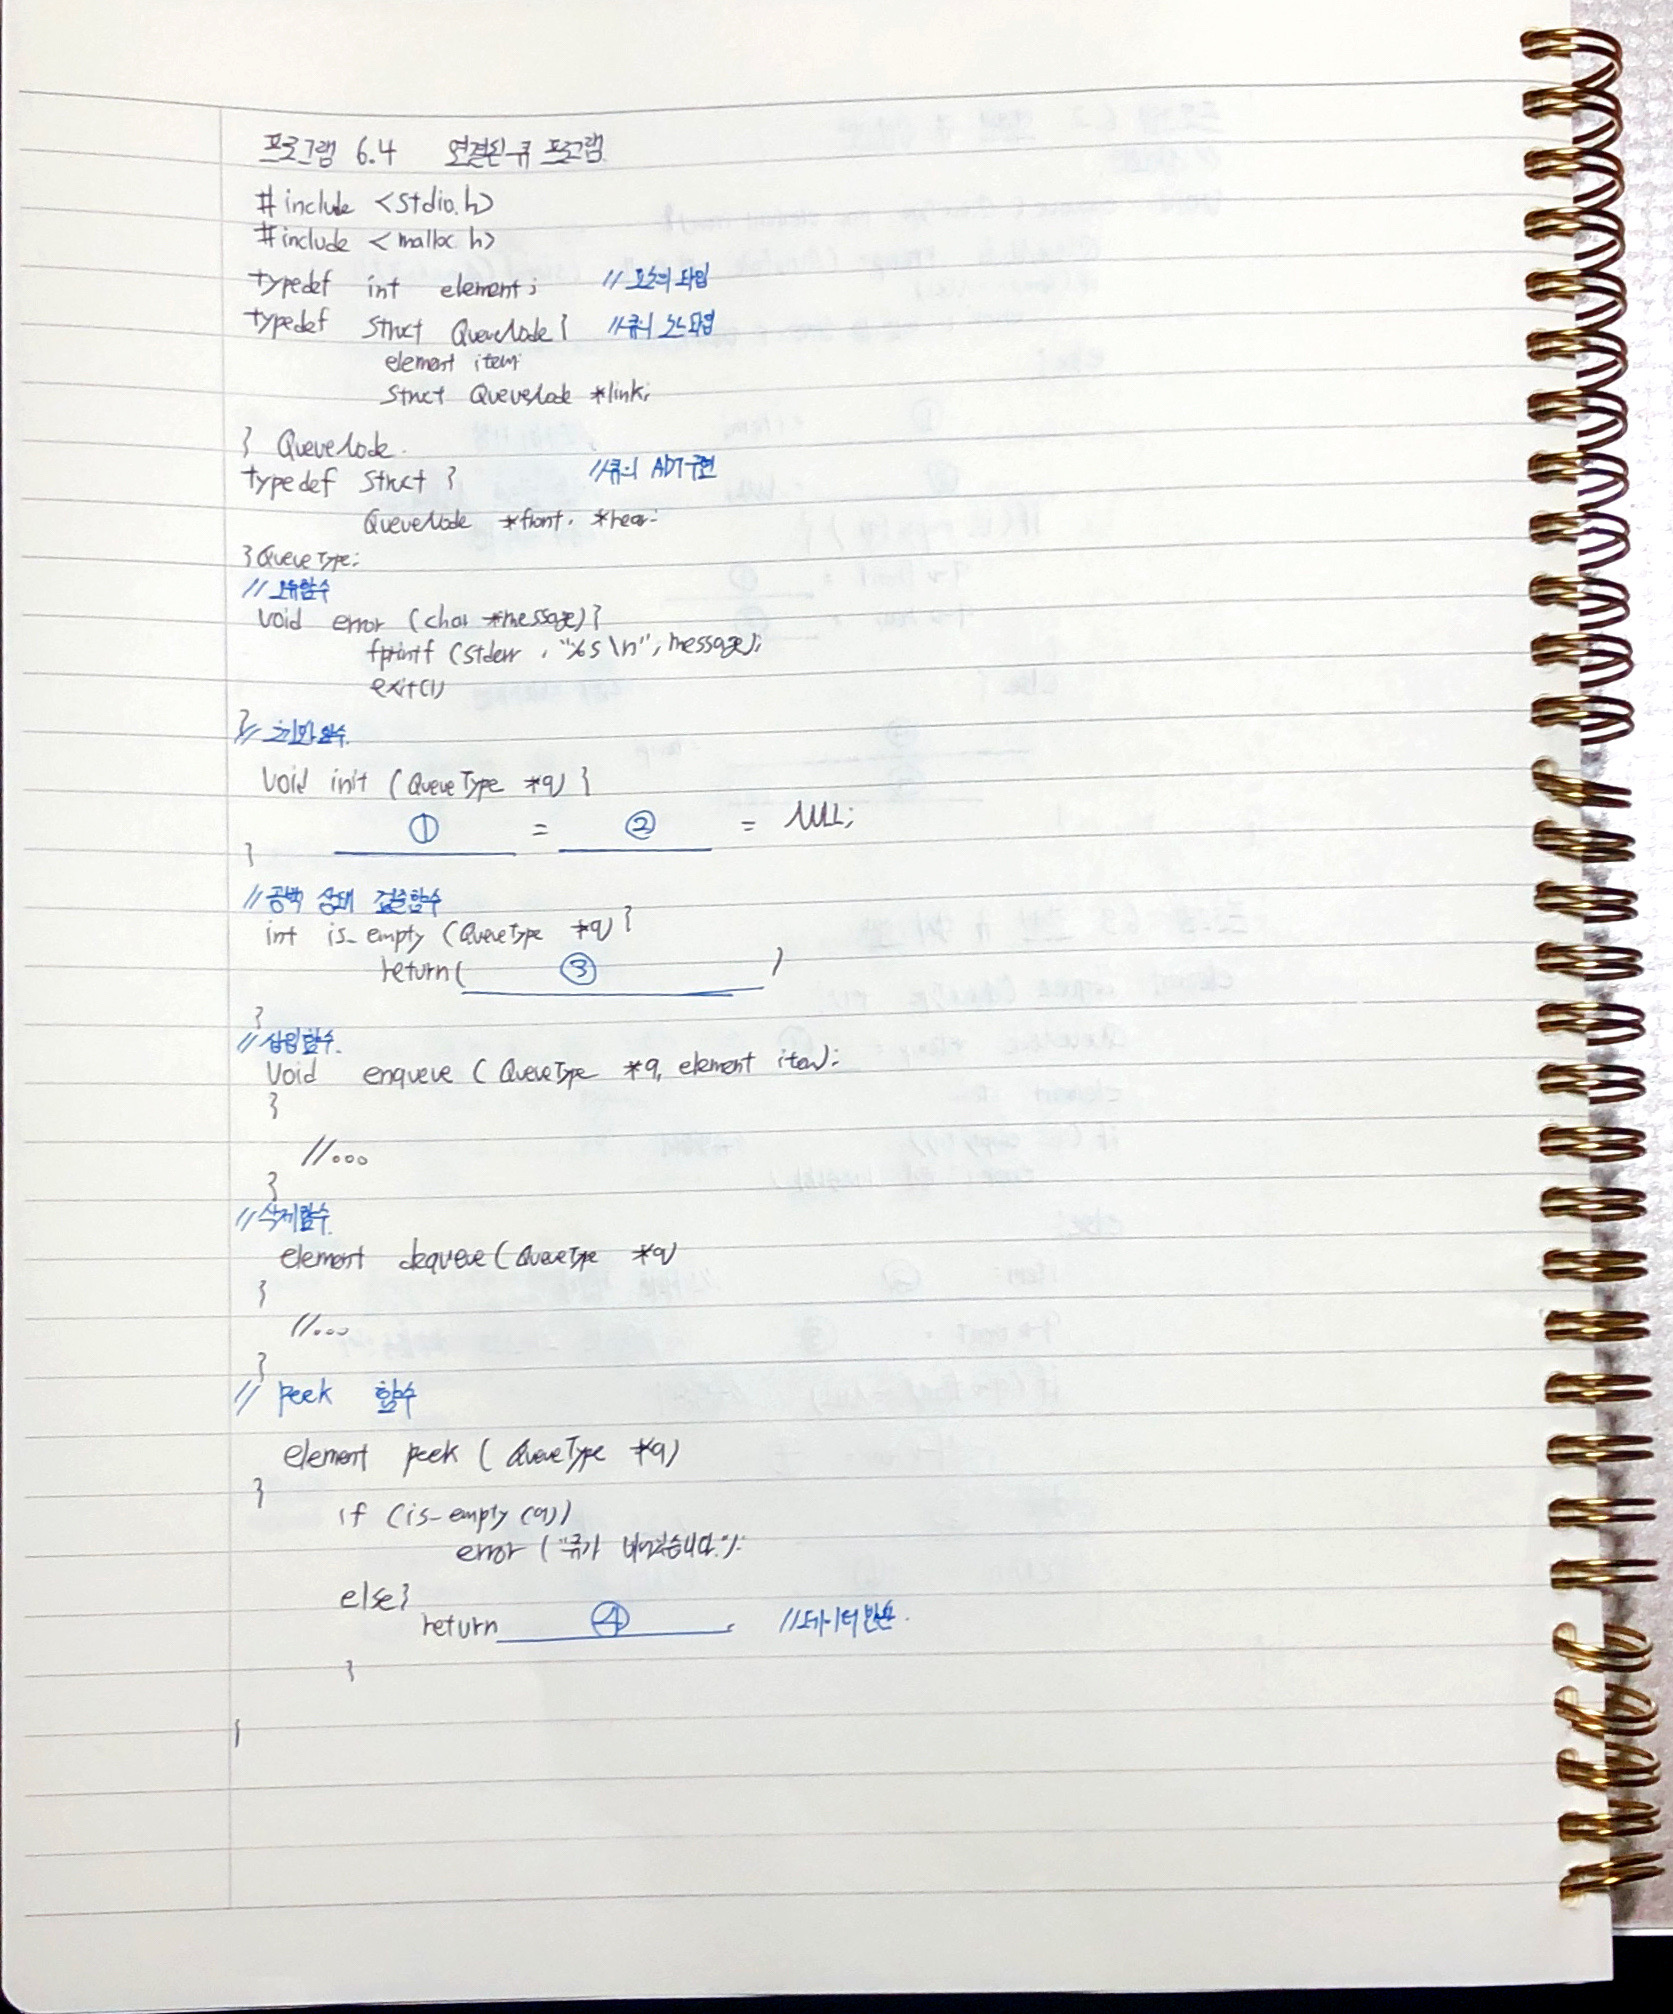 프로그램 6.4 연결된 큐 프로그램
#include <stdio.h>
#include <malloc.h>
typedef int element; //요소의 타입
typedef struct QueueNode { //큐의 노드 타입
element item;
struct QueueNode *link;
} QueueNode.
typedef struct { //큐의 ADT 구현
QueueNode *front, *rear;
} QueueType;
//오류함수
void error (char *message) {
fprintf (stderr, "%s\n", message);
exit(1)
}
//초기화 함수.
void init (QueueType *q) {
① = ② = NULL;
}
//공백 상태 검출함수
int is_empty (QueueType *q) {
return( ③ )
}
//삽입함수.
void enqueue (QueueType *q, element item);
}
//...
}
//삭제함수.
element dequeue (QueueType *q)
}
//...
}
// peek 함수
element peek ( QueueType *q)
}
if (is_empty (q))
error ("큐가 비어있습니다."):
else}
return ④ //데이터 반환.
}
}